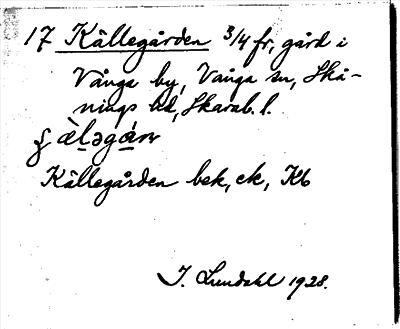 17 Källegården 3/4 fr, gård i
Vånga by, Vånga sn, Skå-
nings hd, Skarab. l.
Källegården bek, ek, Kb
I. Lundahl 1928.